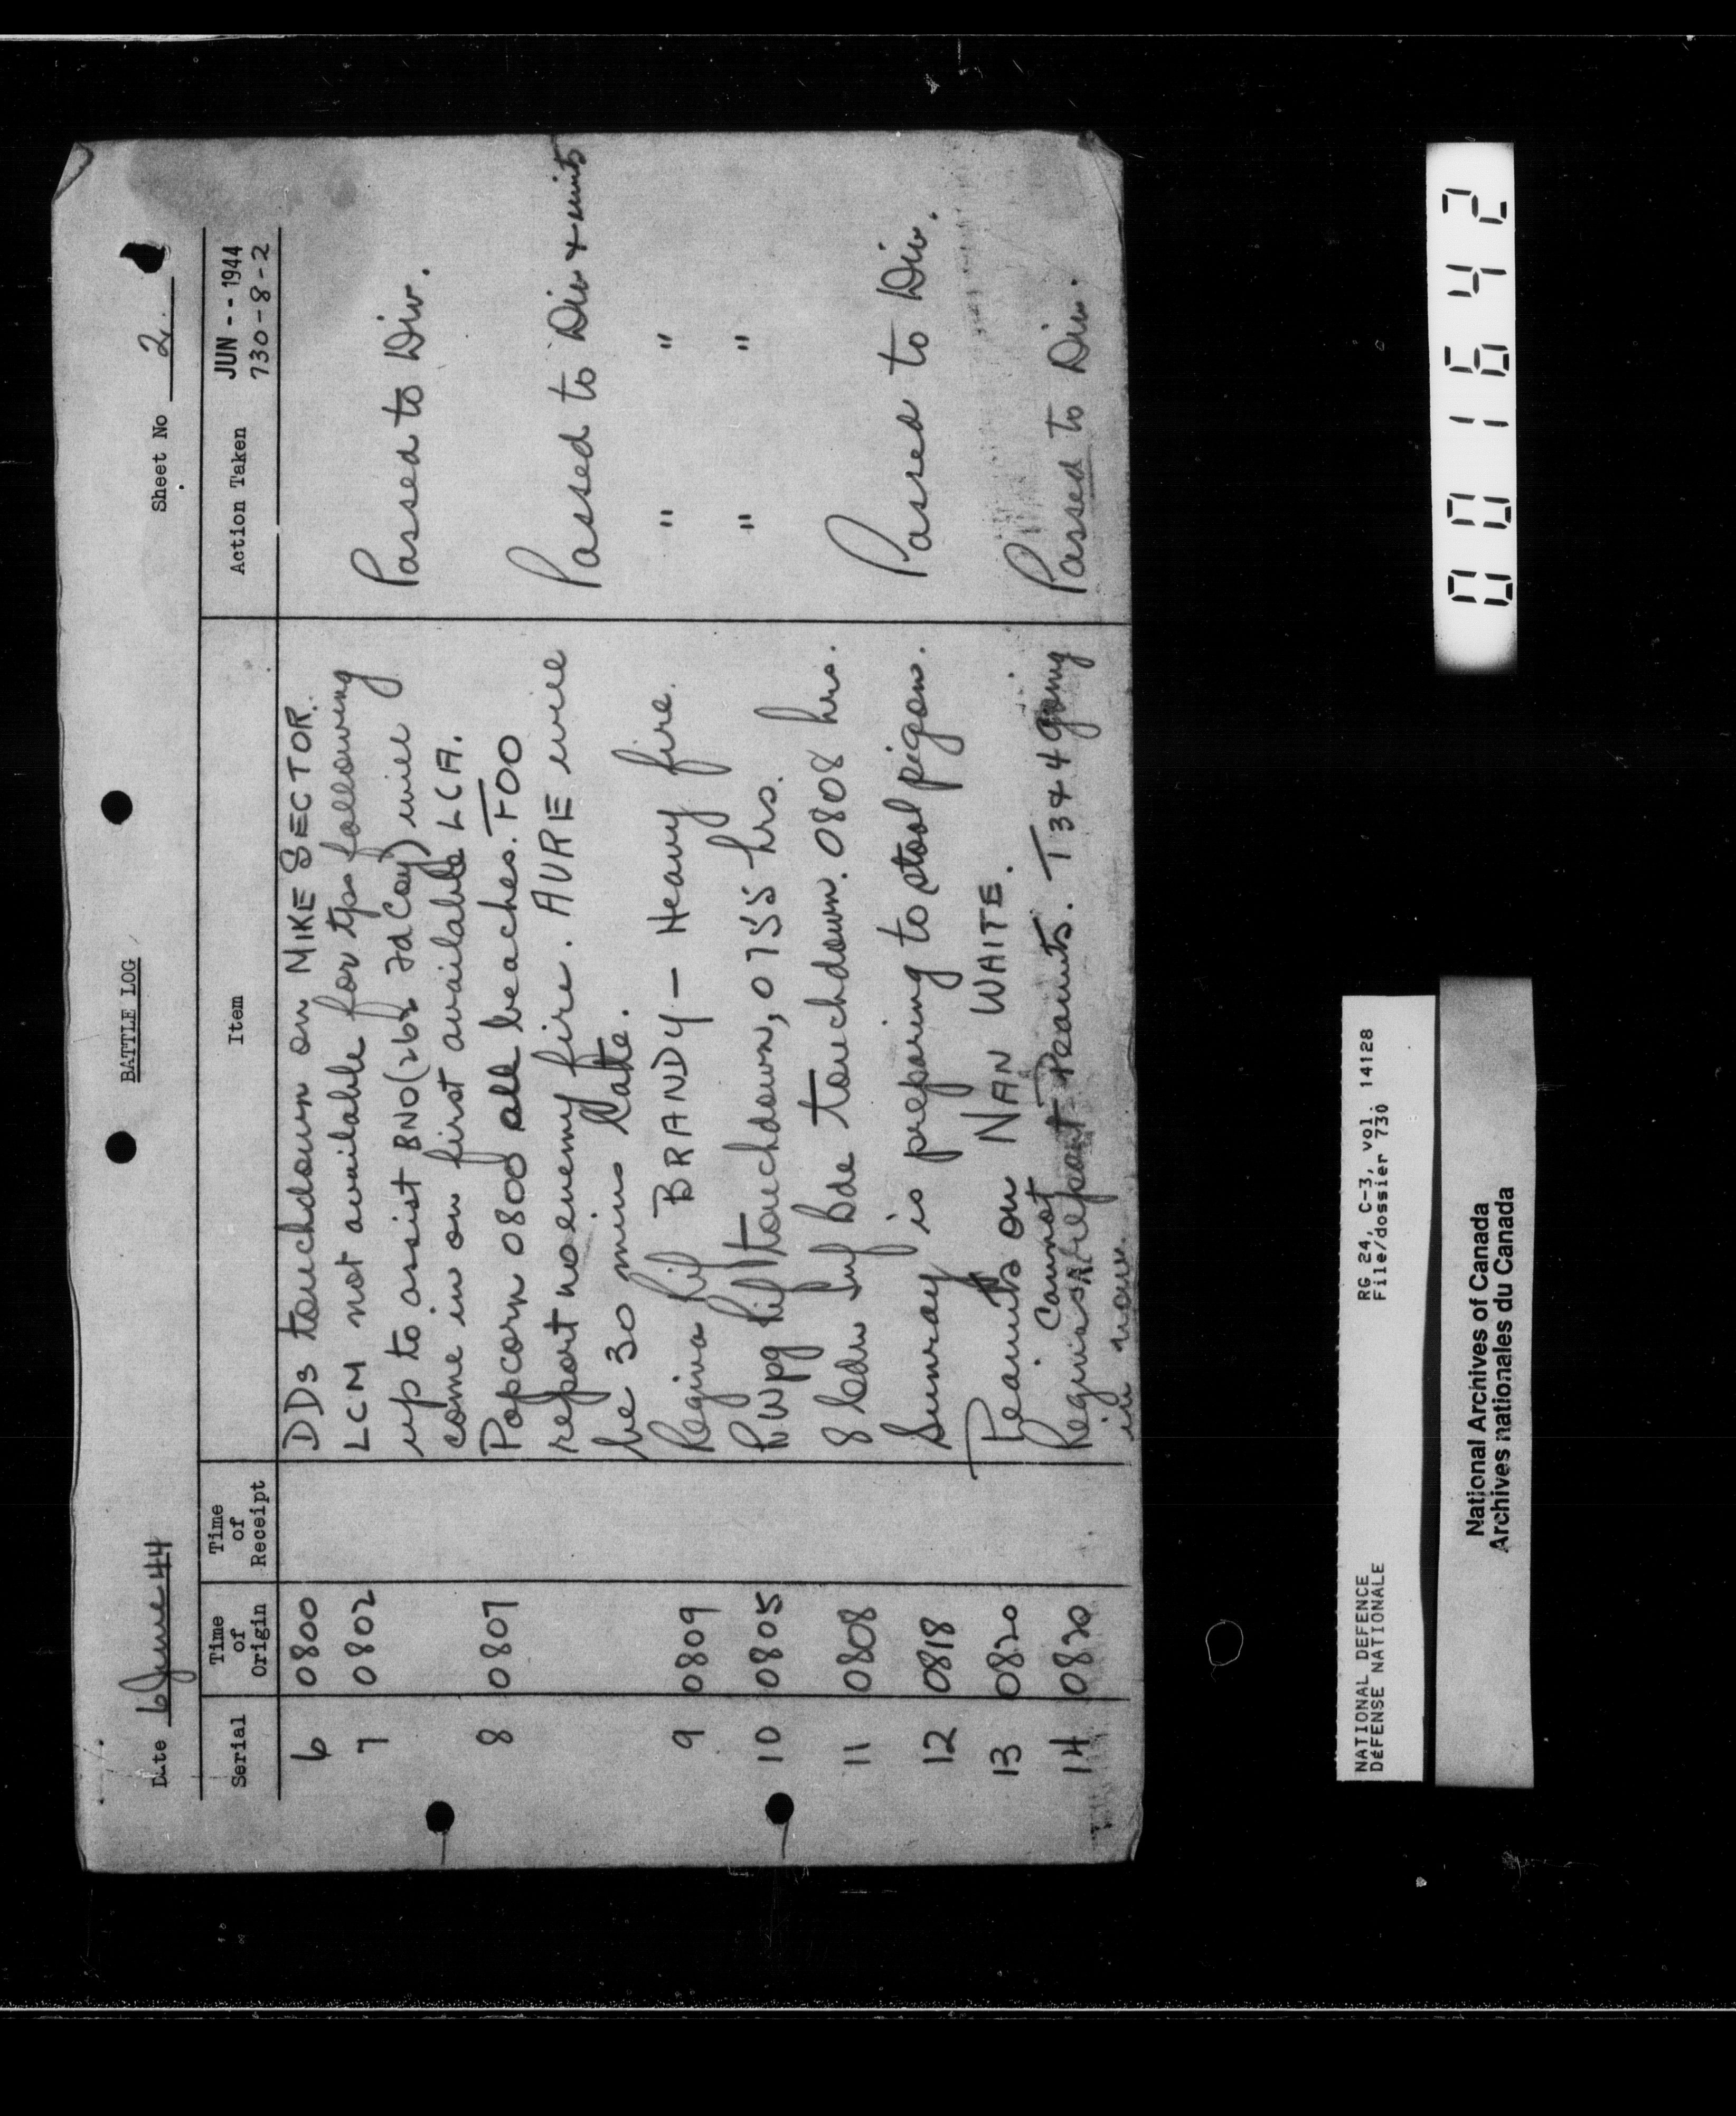 BATTLE LOG
Date 6 June 44
Sheet No 2.
Serial
Time of Origin
Time of Receipt
Item
Action Taken
JUN -- 1944
730-8-2
6 0800 DDs touchdown on MIKE SECTOR.
7 0802 LCM not available for tps following Passed to Div.
up to assist BNO (262 Fd Coy) will
come in on first available LCA.
8 0807 Popcorn 0800 all beaches. FOO
report no enemy fire. AVRE will Passed to Div & units
be 30 mins late.
9 0809 Regina Rif BRANDY - Heavy fire. " "
10 0805 R Wpg Rif touchdown, 0755 hrs. " "
11 0808 8 Cdn Inf Bde touchdown. 0808 hrs.
12 0818 Sunray is preparing to stool pigeon. Passed to Div.
13 0820 Peanuts on NAN WAITE.
cannot
14 0820 Reginas report Peanuts. T3 & 4 going Passed to Div.
in now.
NATIONAL DEFENCE RG 24, C-3, vol. 14128
DéFENSE NATIONALE File/dossier 730
National Archives of Canada
Archives nationales du Canada
001642